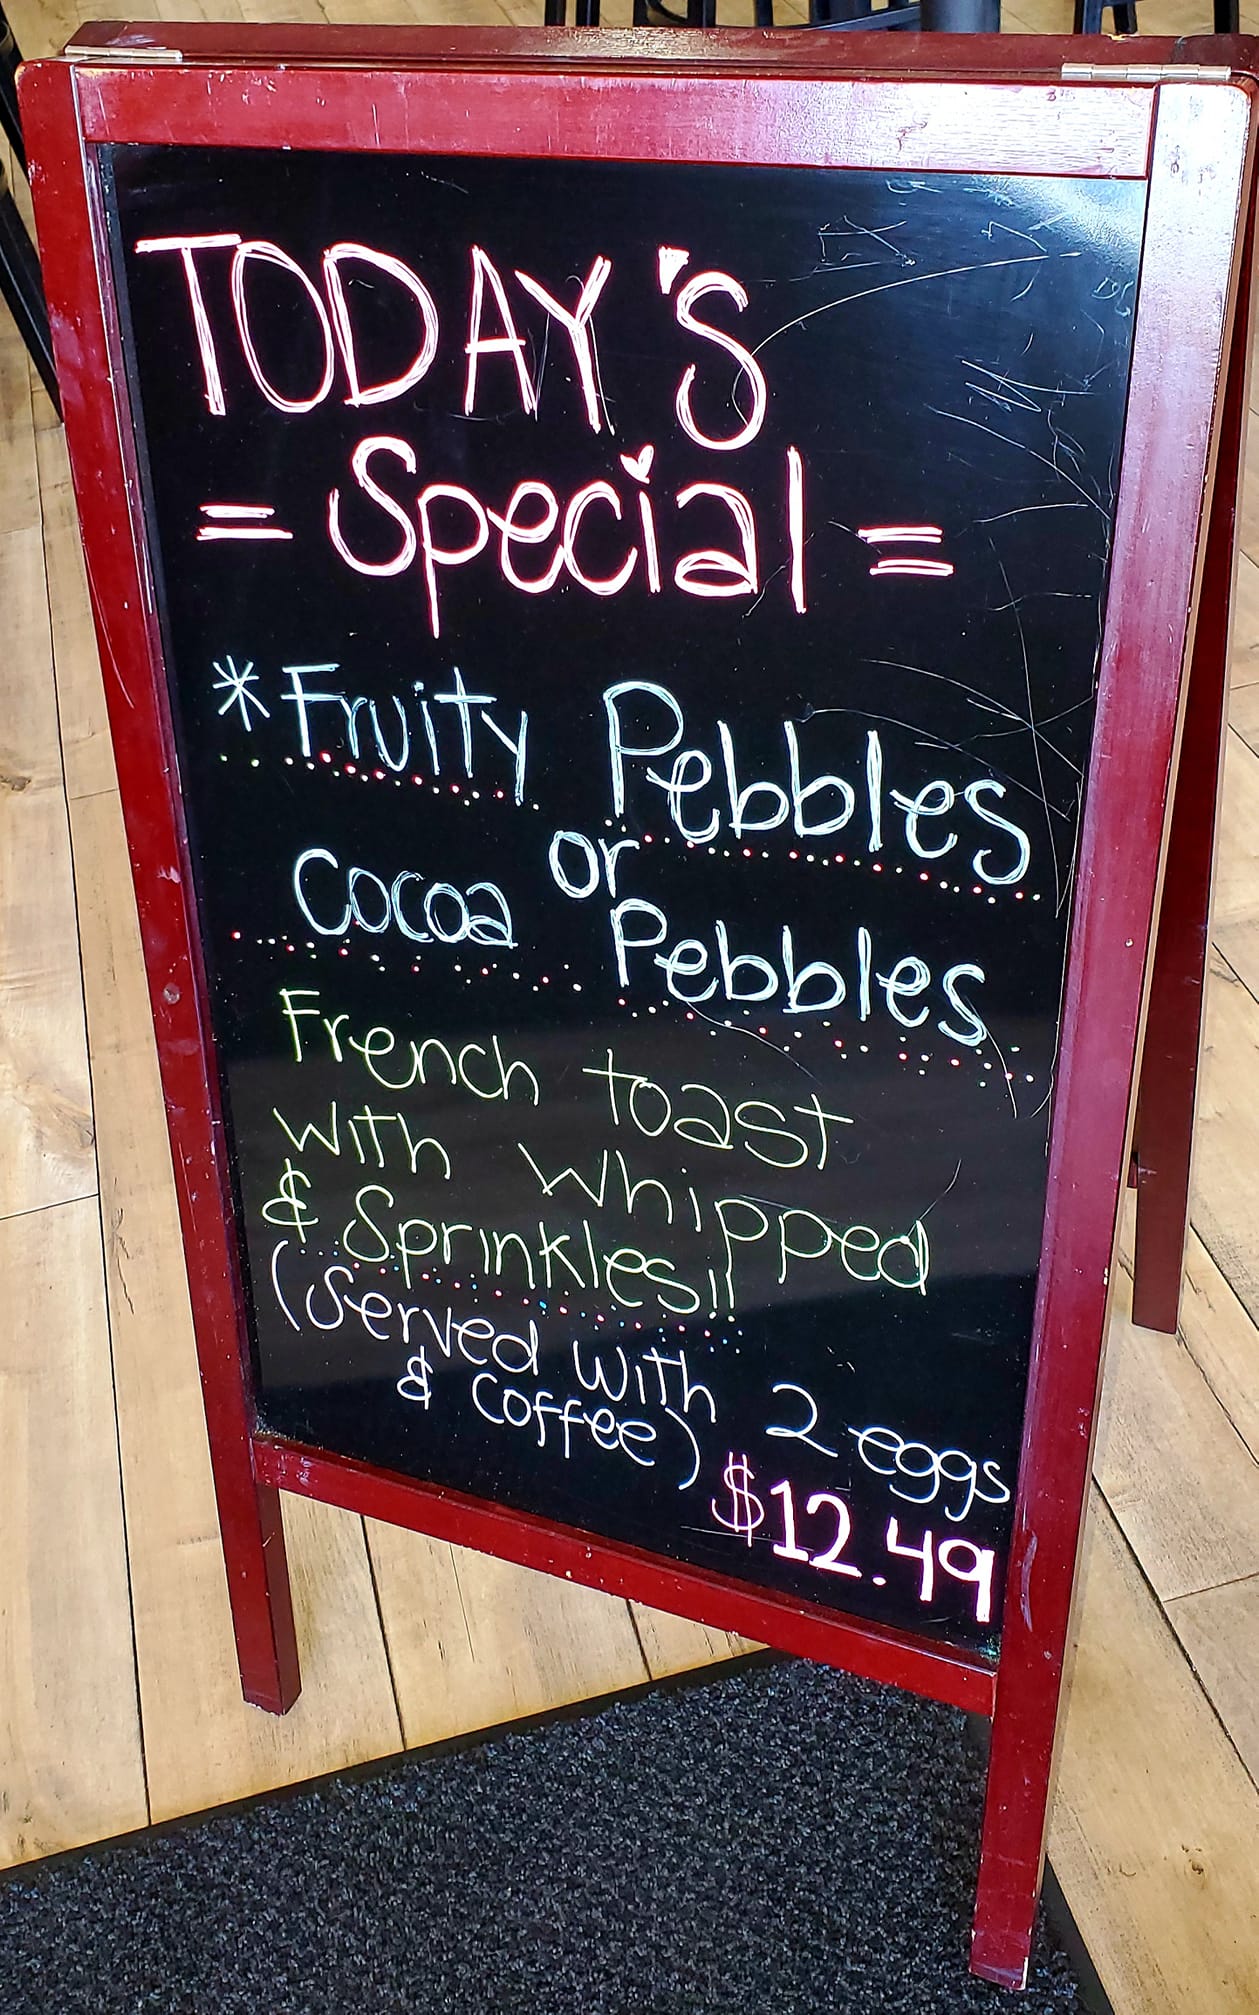 TODAY'S
= Special =
*Fruity Pebbles
or
Cocoa Pebbles
French toast
with whipped
& Sprinkles!!
(Served with 2 eggs
& coffee)
$12.49